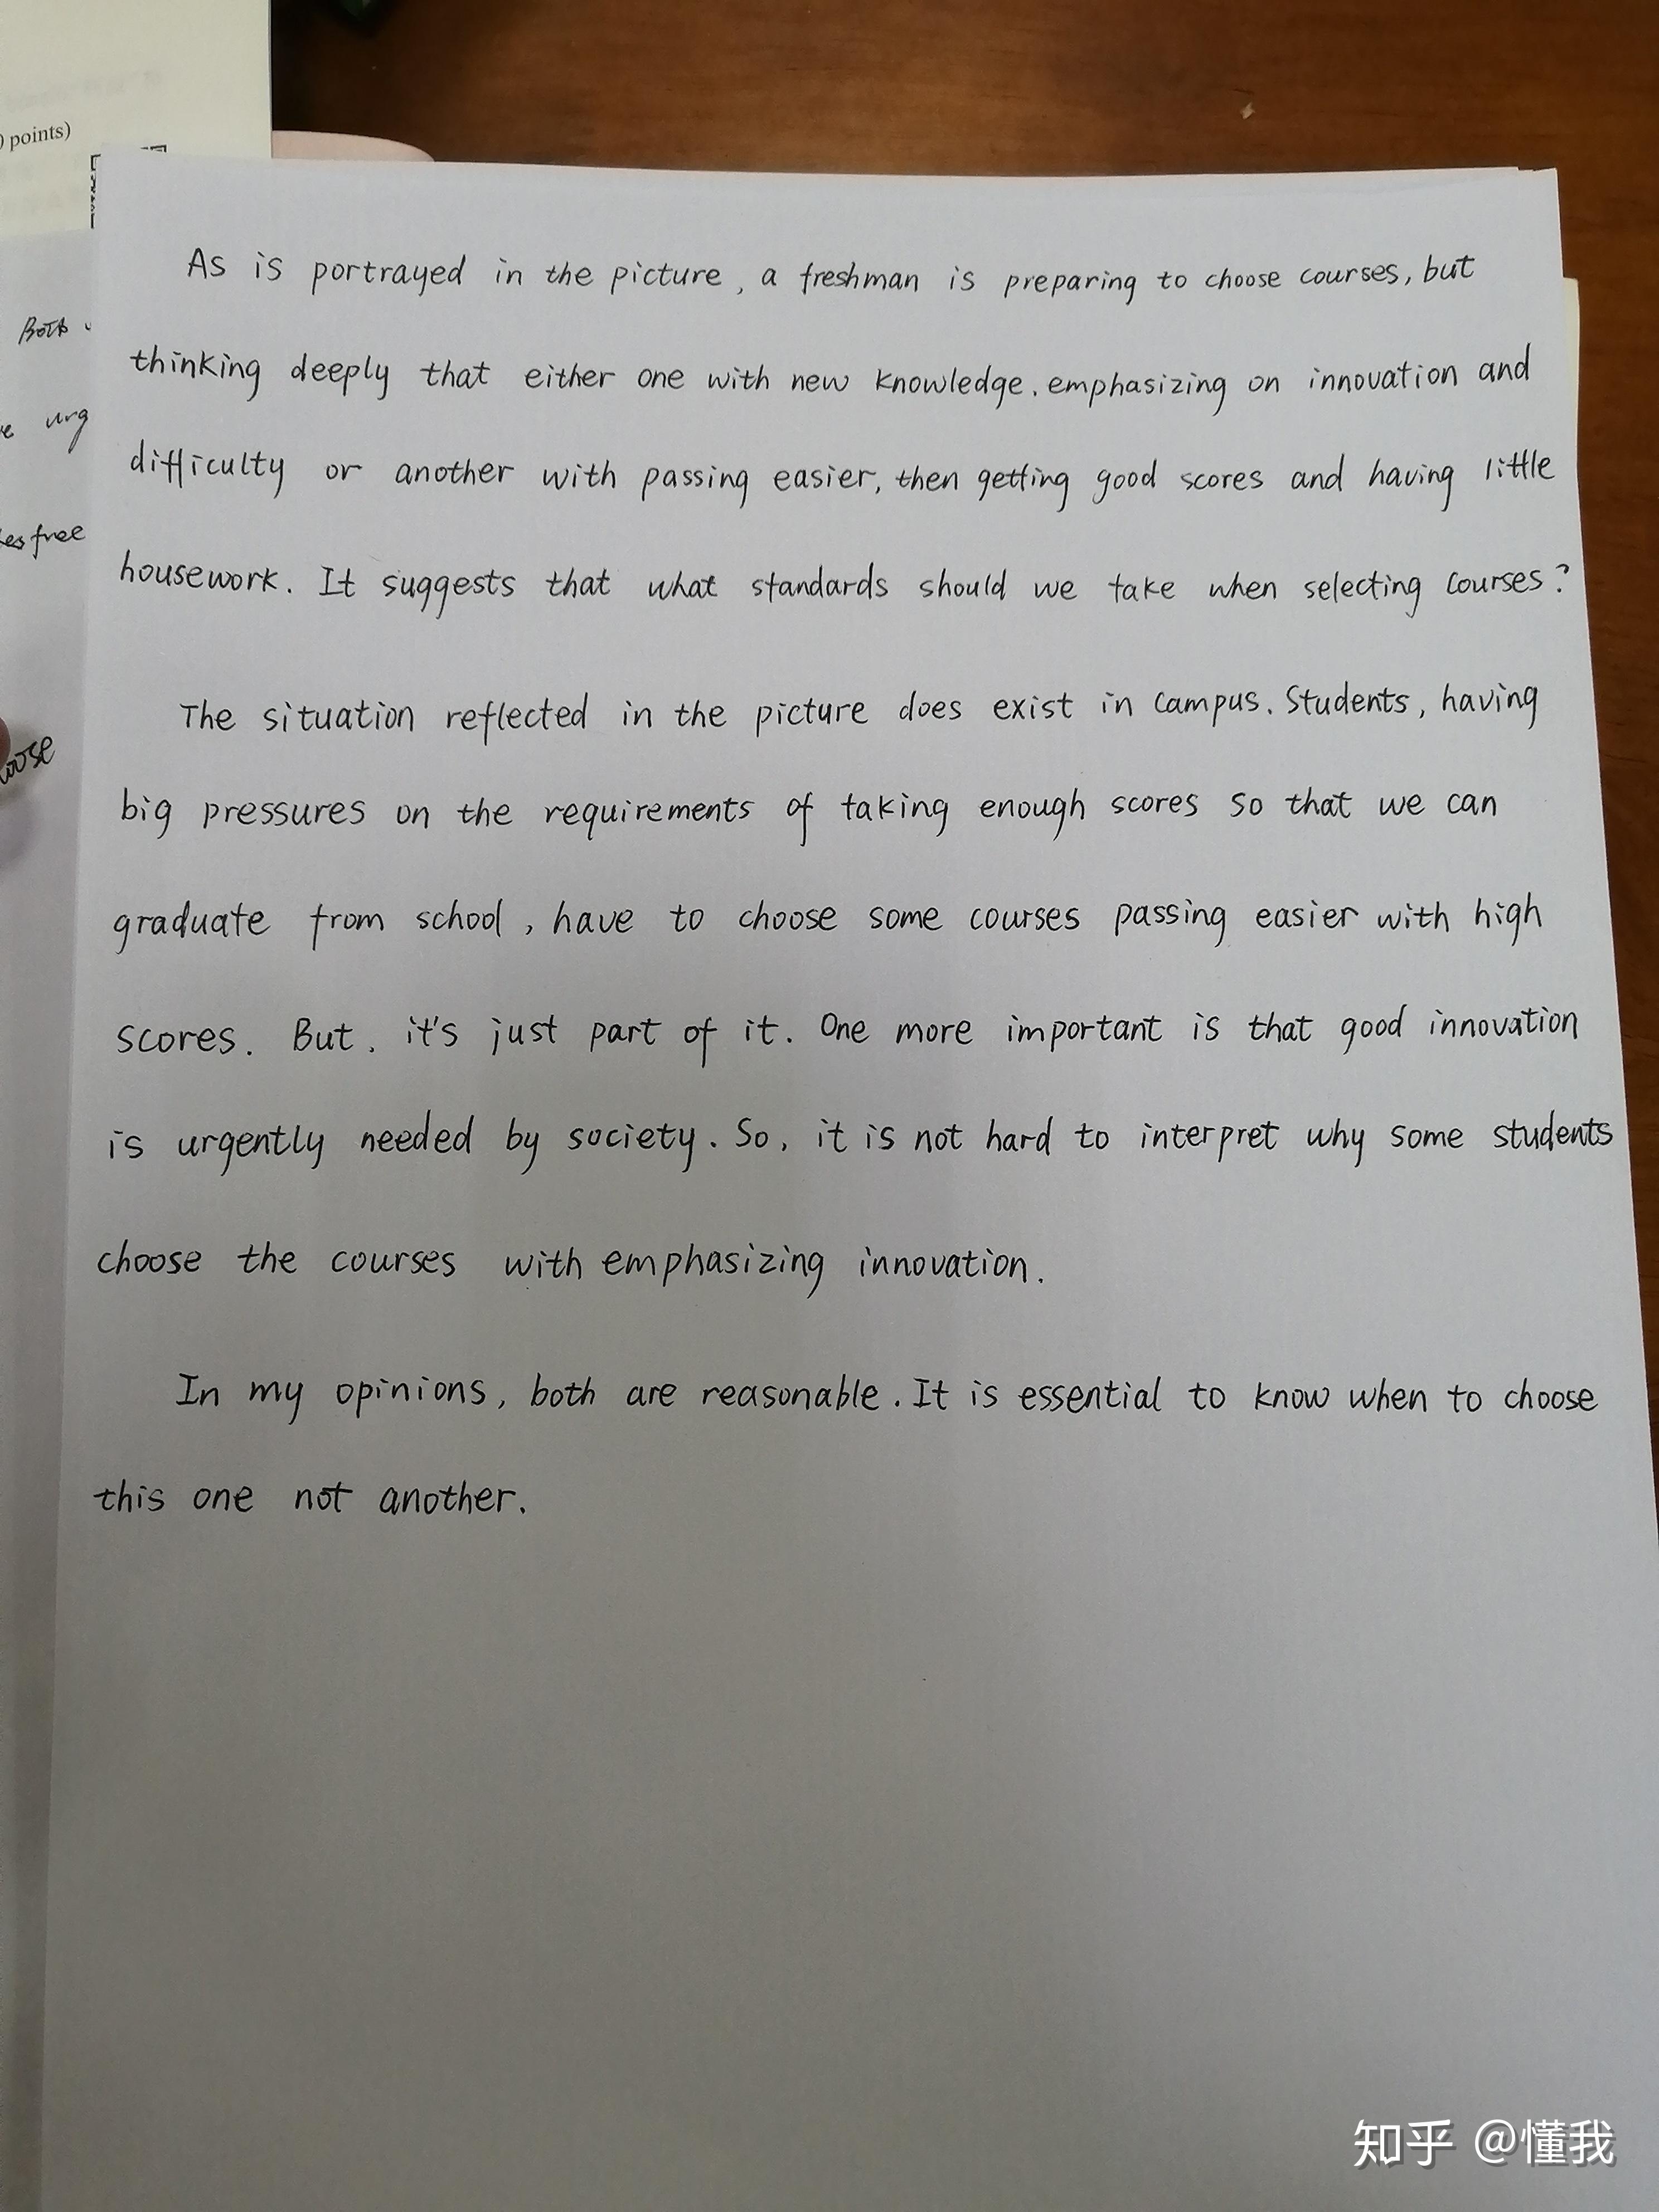 points)
Both
urg
free
As is portrayed in the picture, a freshman is preparing to choose courses, but
thinking deeply that either one with new knowledge, emphasizing on innovation and
difficulty or another with passing easier, then getting good scores and having little
housework. It suggests that what standards should we take when selecting courses?
The situation reflected in the picture does exist in campus. Students, having
big pressures on the requirements of taking enough scores so that we can
graduate from school, have to choose some courses passing easier with high
scores. But, it's just part of it. One more important is that good innovation
is urgently needed by society. So, it is not hard to interpret why some students
choose the courses with emphasizing innovation.
In my opinions, both are reasonable. It is essential to know when to choose
this one not another.
知乎 @懂我